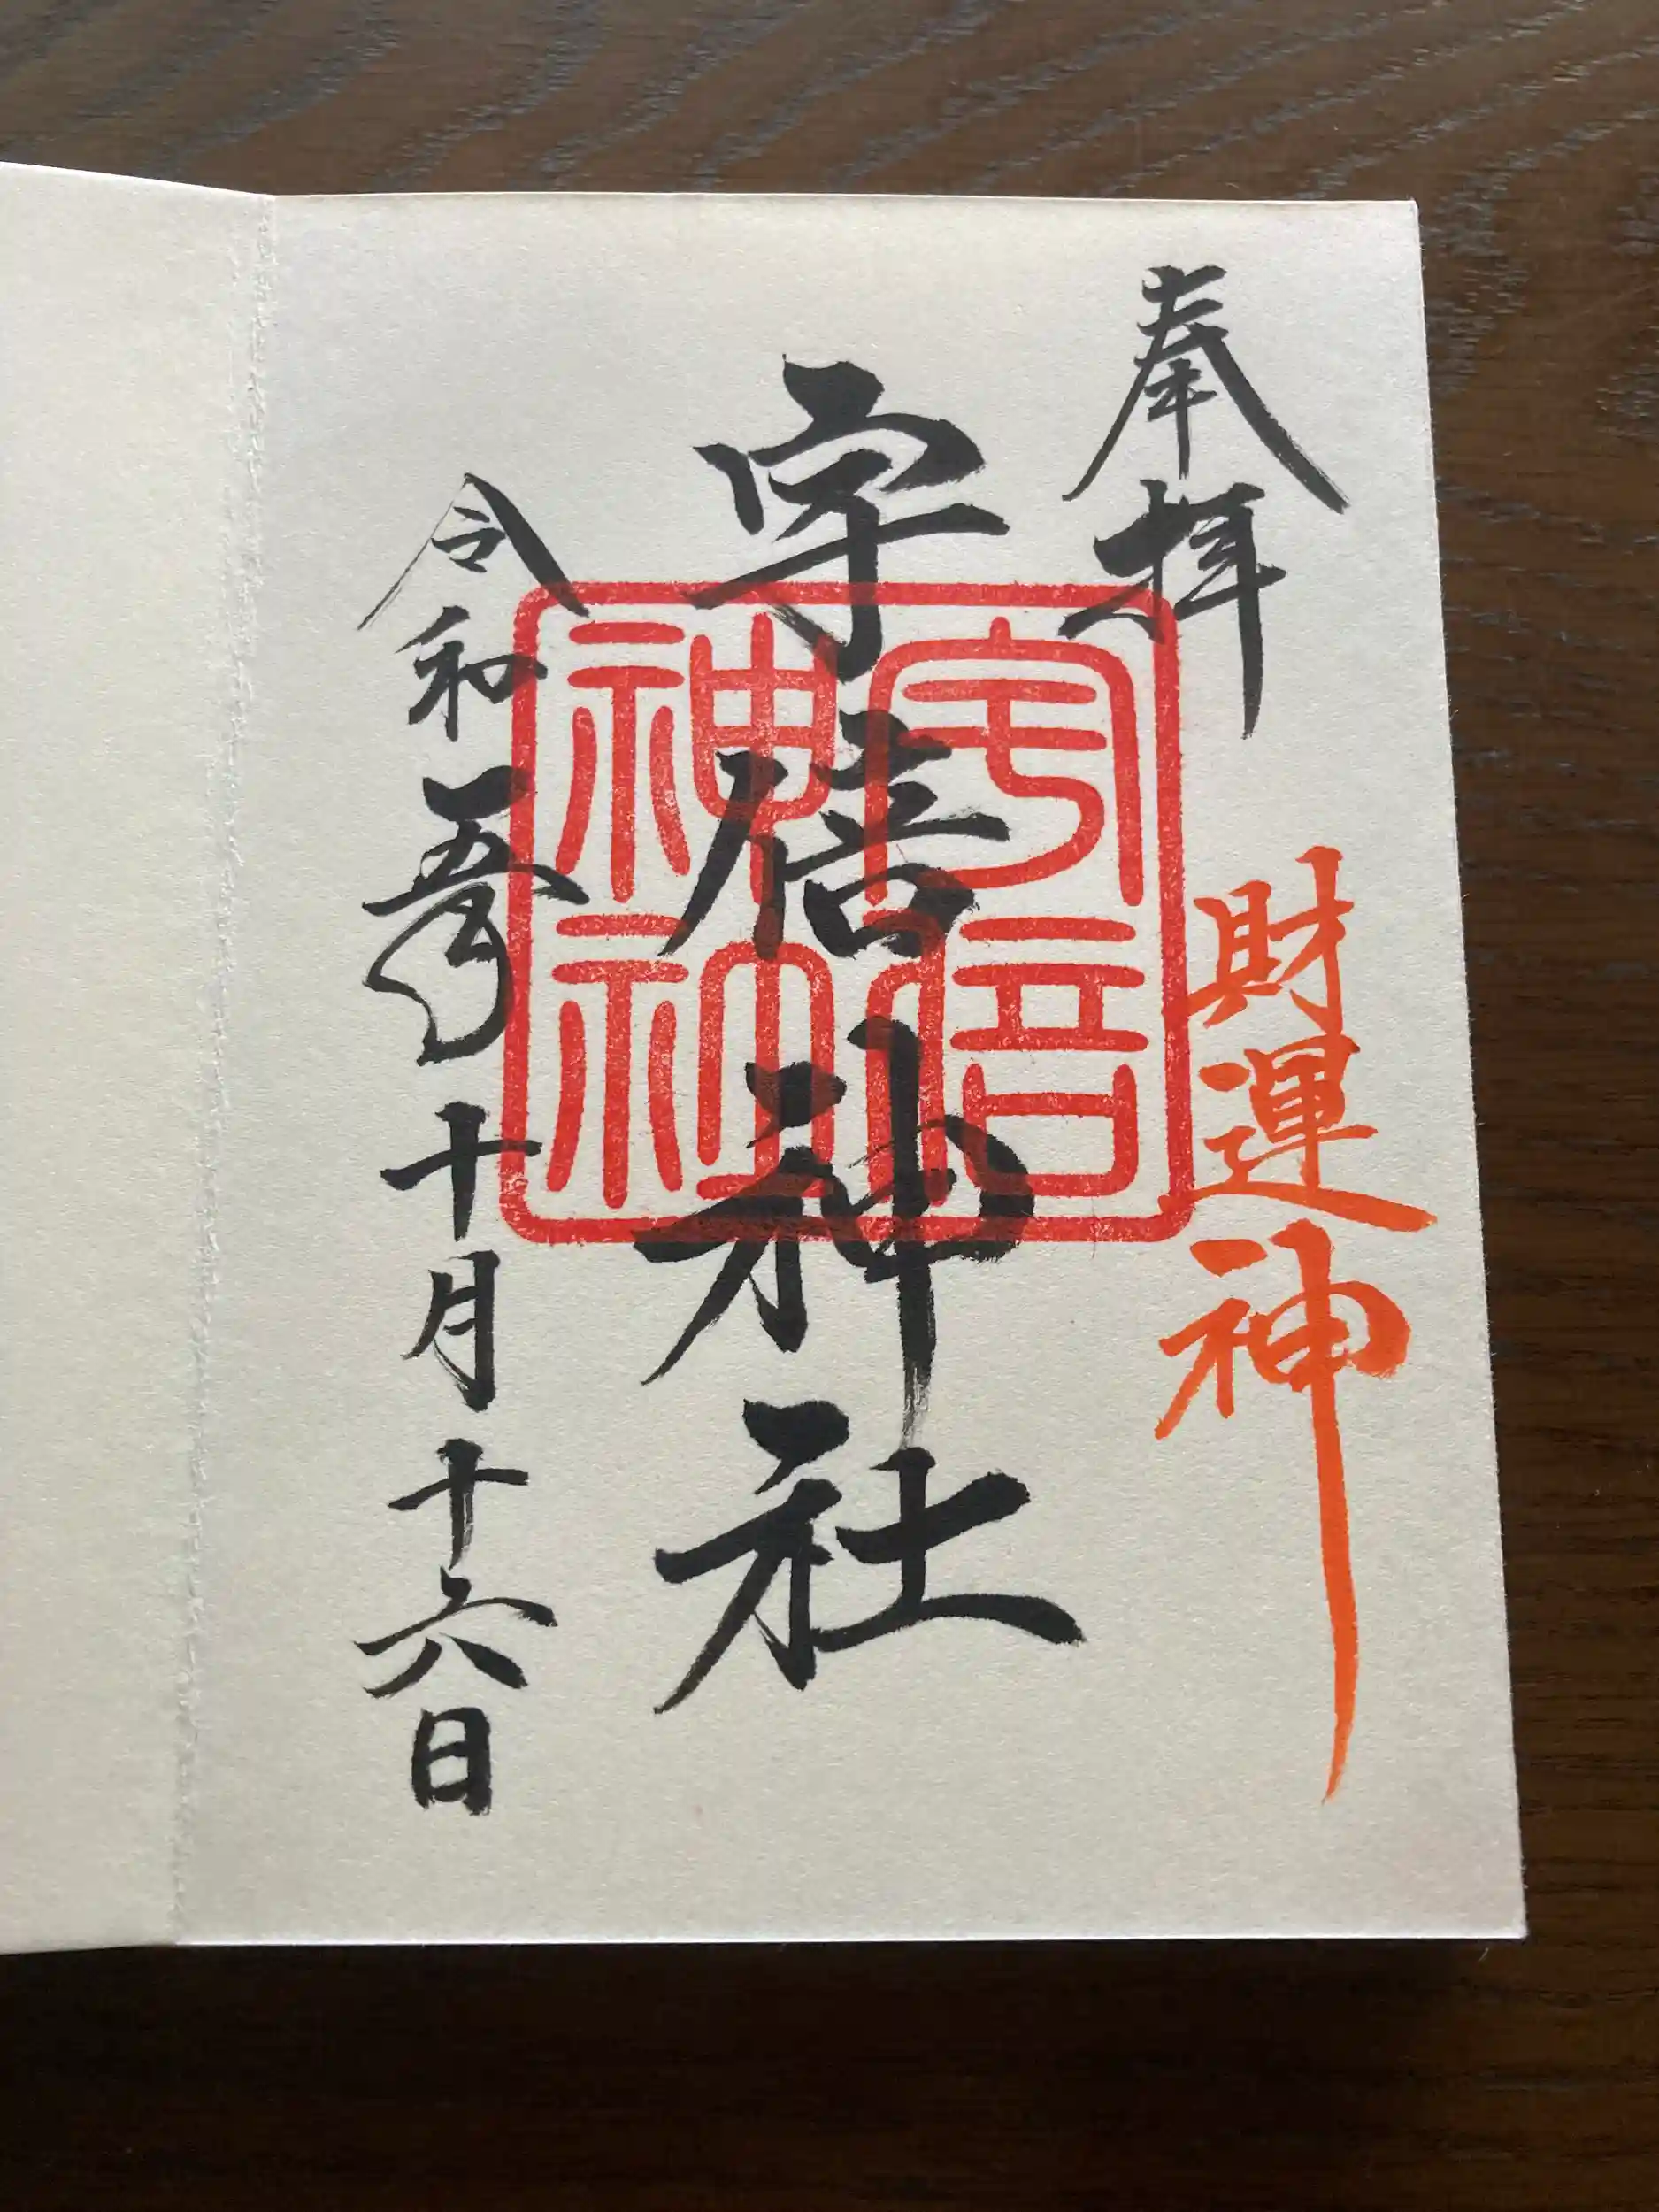 奉拝
財運神
宇倍神社
宇倍
神社
令和五年十月十六日